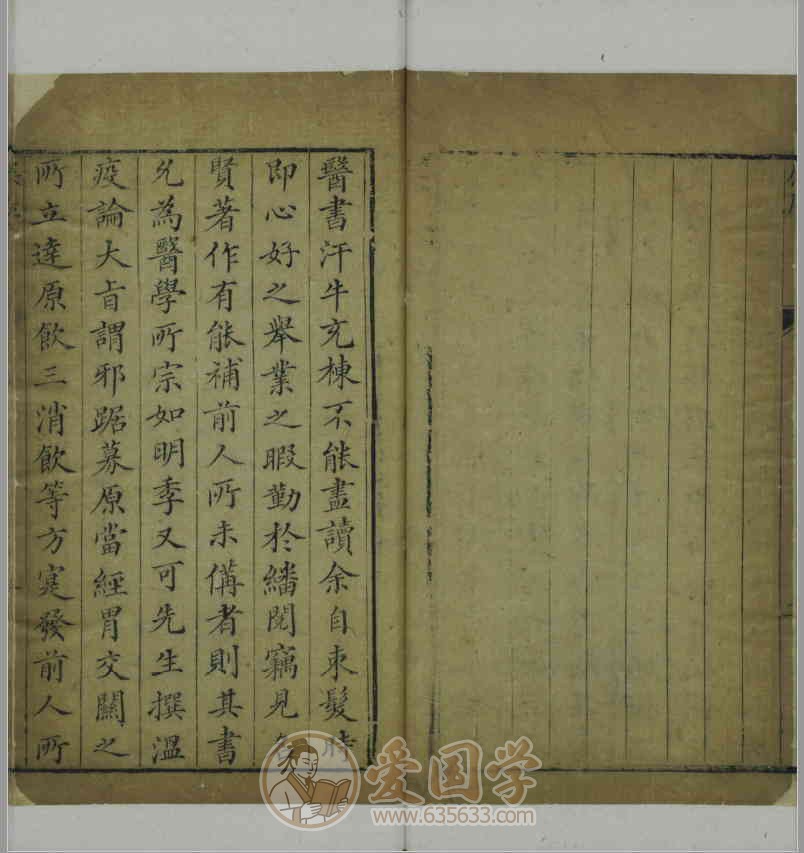 醫書汗牛充棟不能盡讀余自束髮時
即心好之舉業之暇勤於繙閱竊見
賢著作有能補前人所未備者則其書
允為醫學所宗如明季又可先生撰溫
疫論大旨謂邪踞募原當經胃交關之
所立達原飲三消飲等方寔發前人所
爱国学
www.635633.com